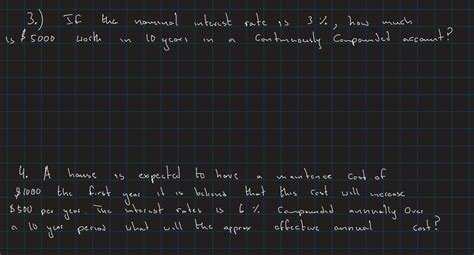 3.) If the nominal interest rate is 3%, how much
is $5000 worth in 10 years in a Continuously Compounded account?
4. A house is expected to have a maintence cost of
$1000 the first year it is believd that this cost will increase
$500 per year. The interest rates is 6% Compounded annually Over
a 10 year period what will the approx effective annual cost?